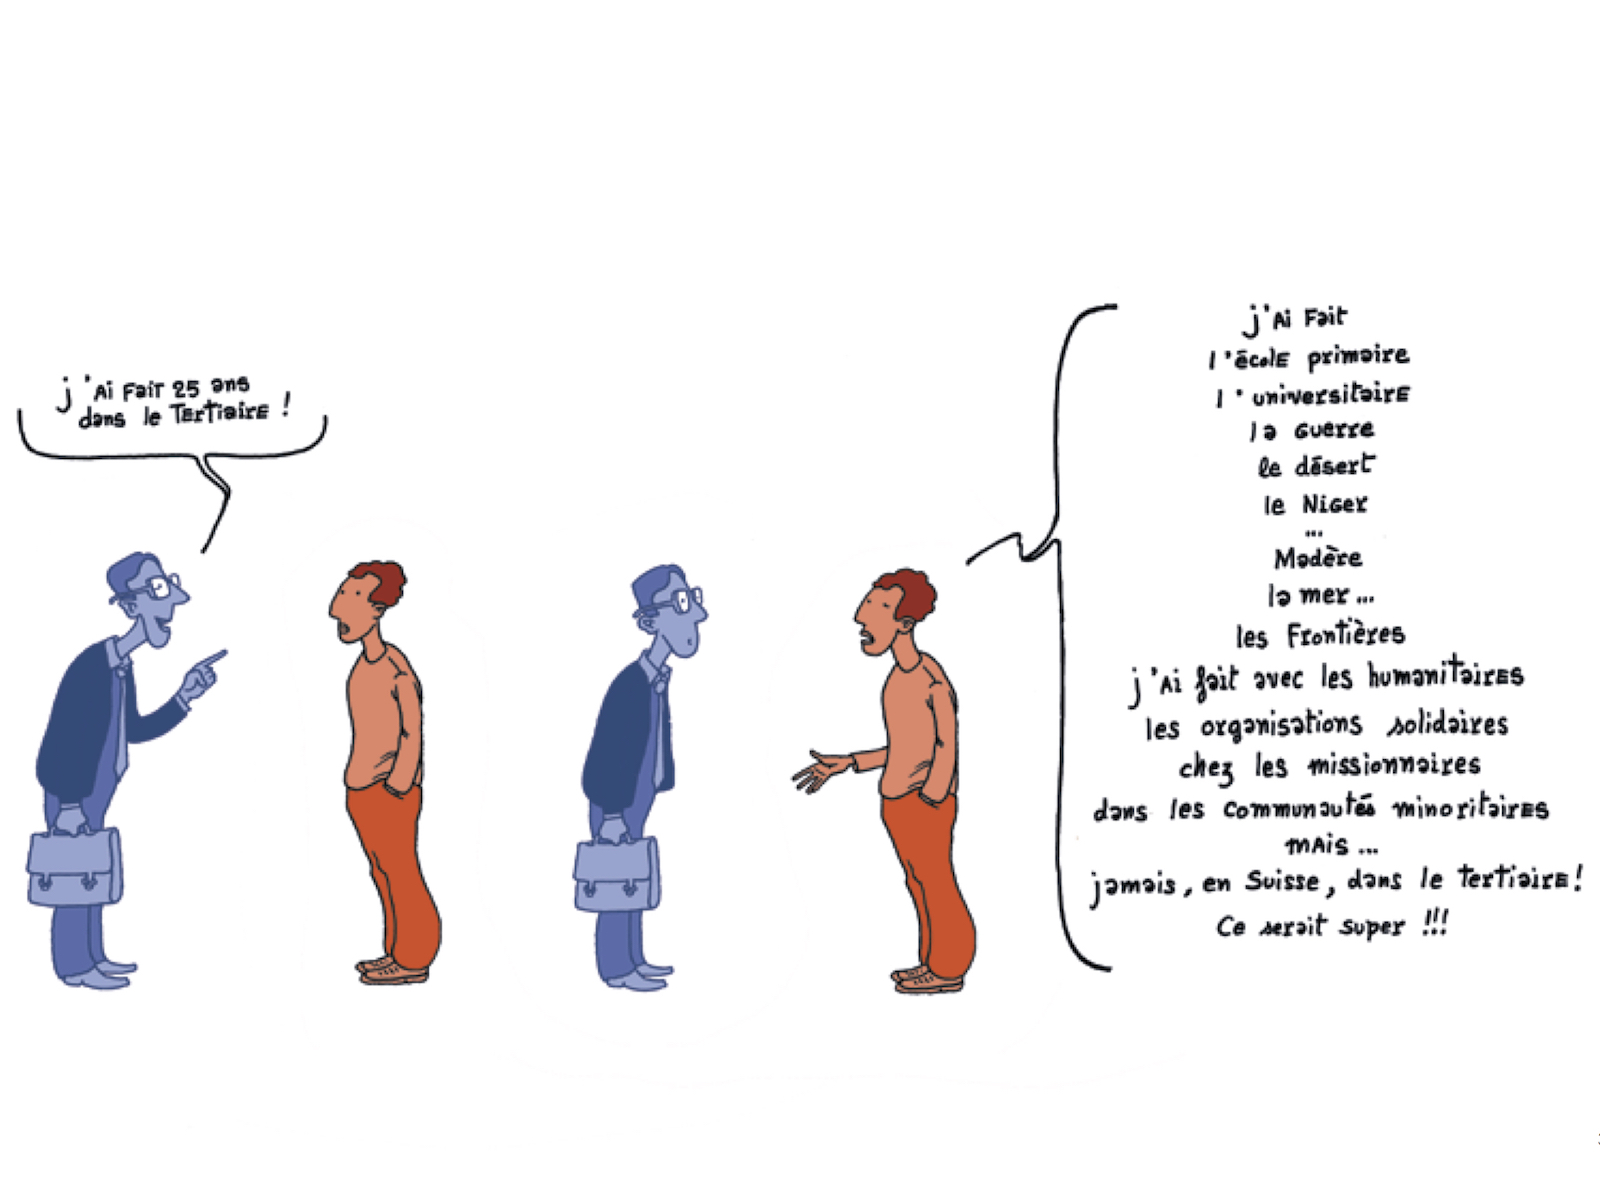 j'Ai Fait 25 ans
dans le Tertiaire !
j'Ai Fait
l'école primaire
l'universitaire
la Guerre
le désert
le Niger
...
Madère
la mer...
les Frontières
j'Ai fait avec les humanitaires
les organisations solidaires
chez les missionnaires
dans les communautés minoritaires
mais...
jamais, en Suisse, dans le tertiaire!
Ce serait super !!!